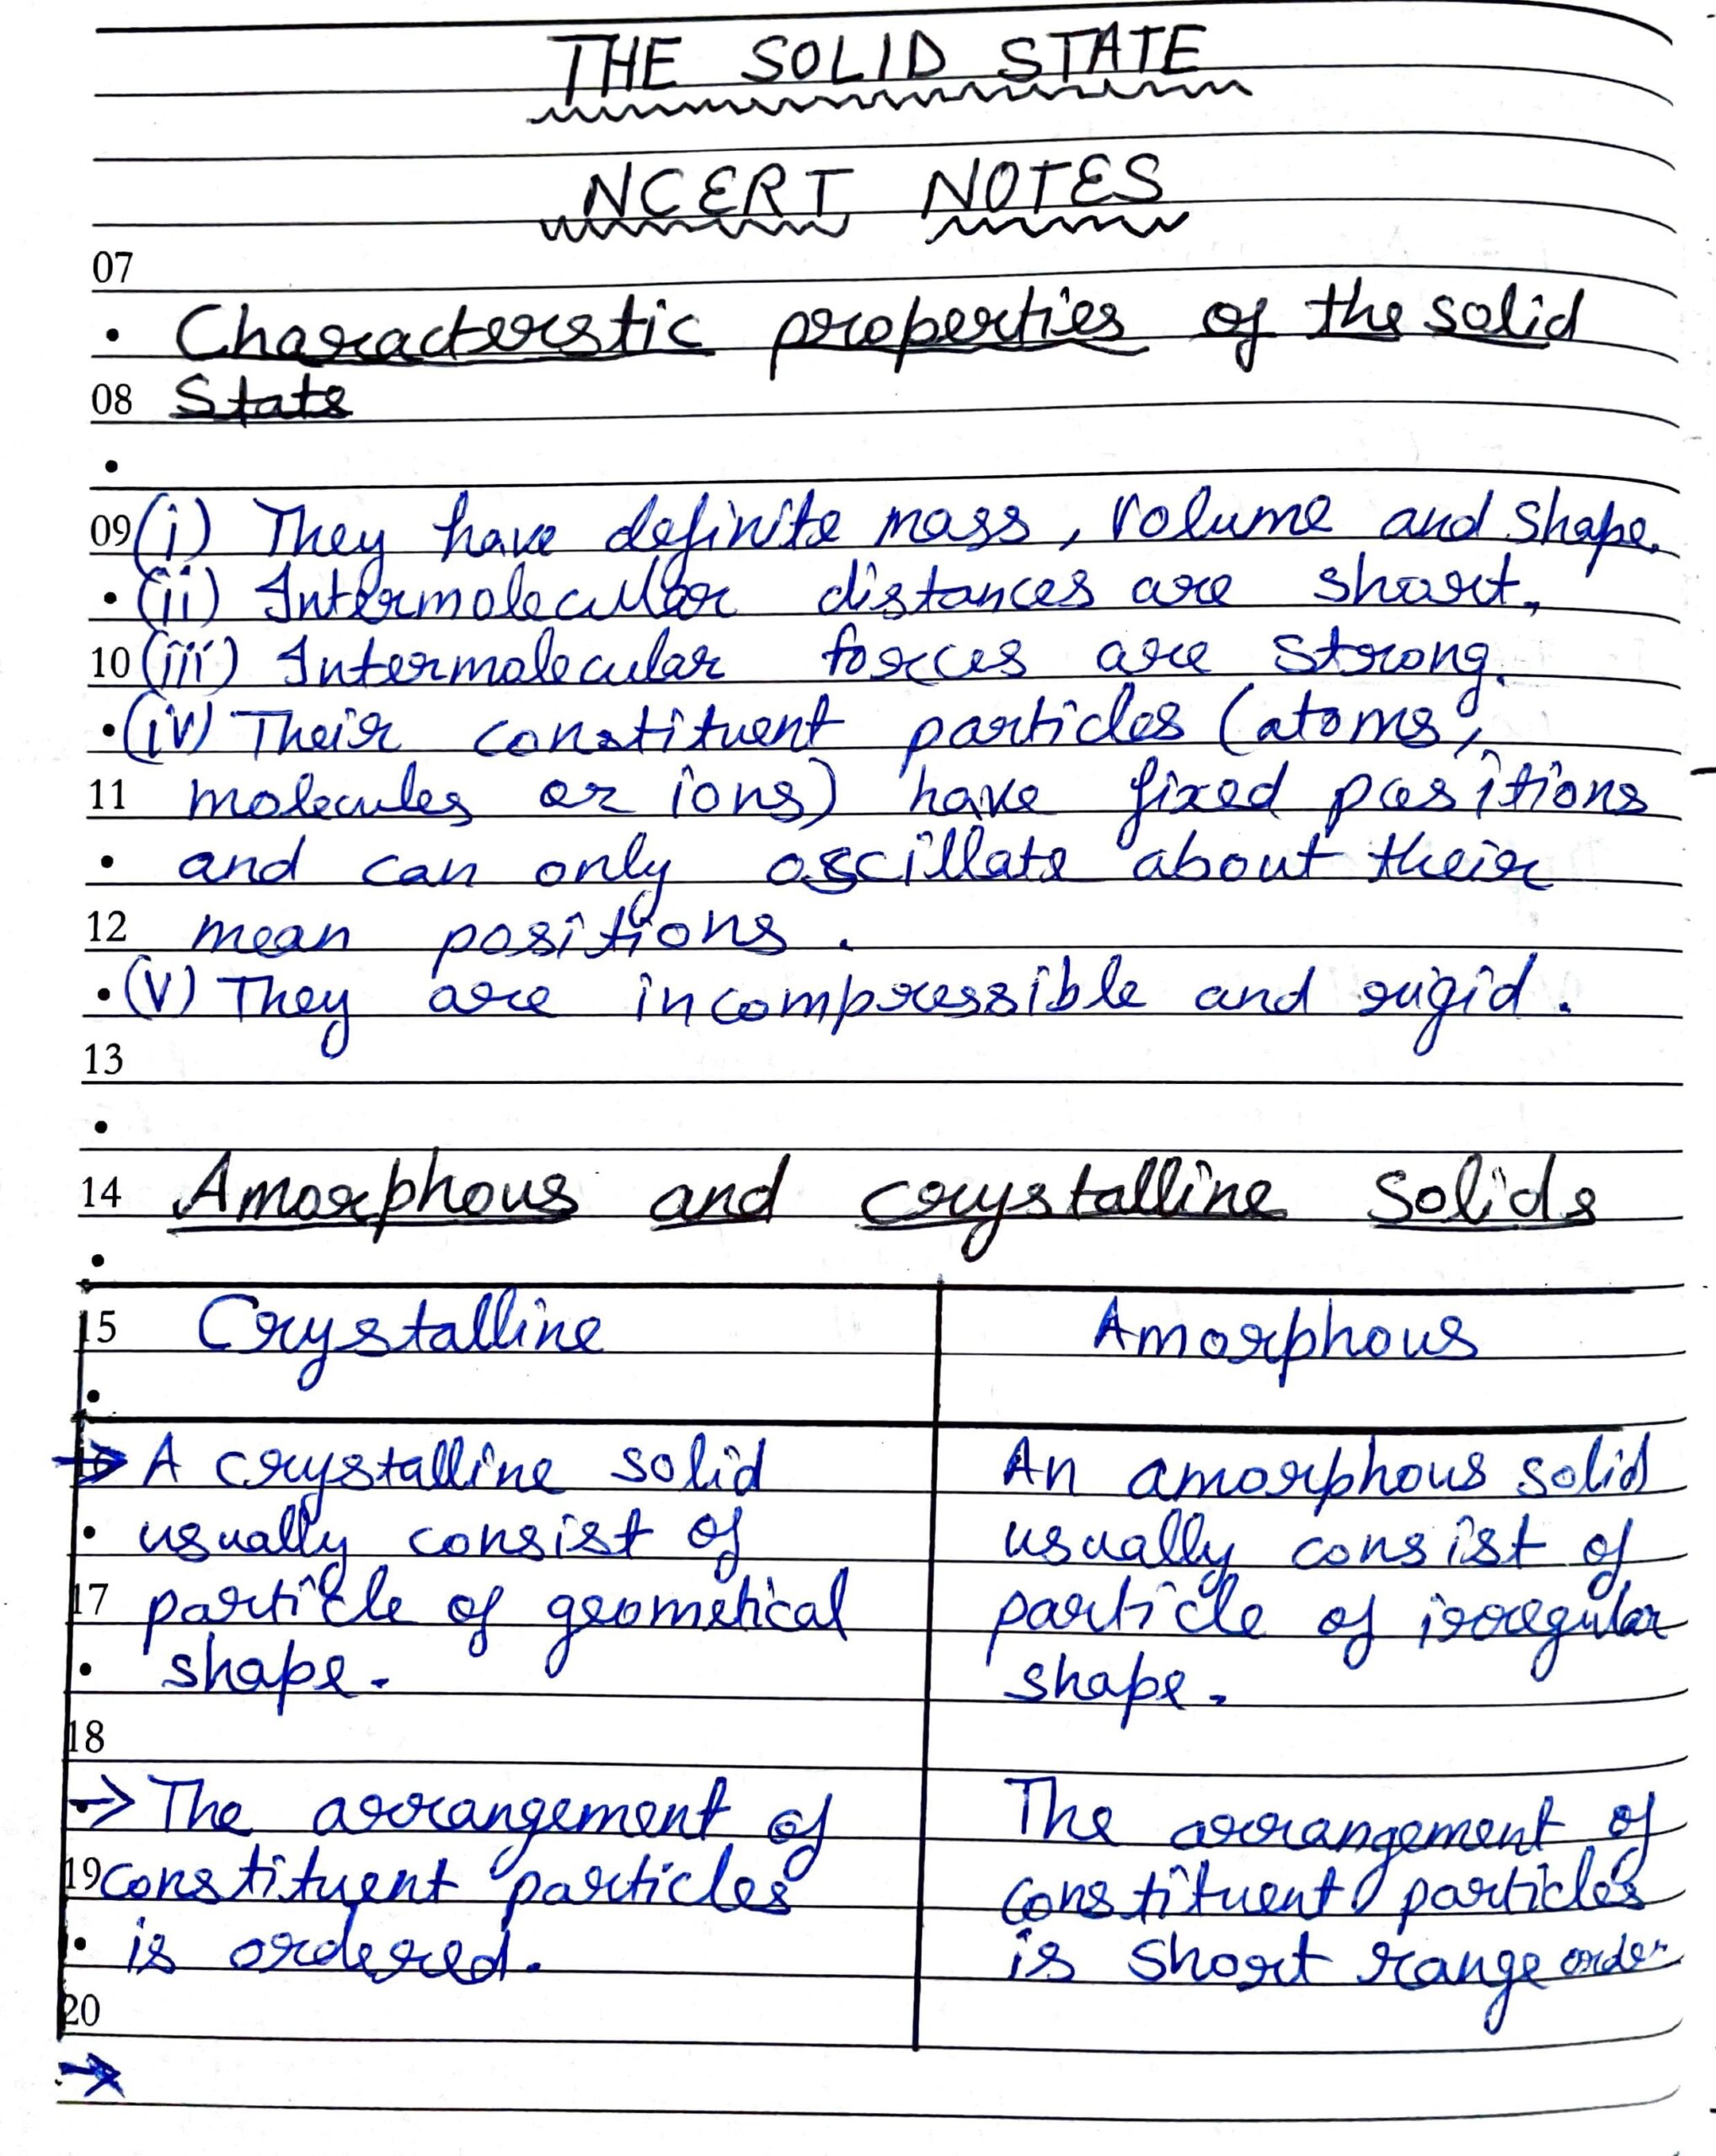 THE SOLID STATE
NCERT NOTES
07
• Characterstic properties of the solid
08 State
•
09 (i) They have definite mass, volume and shape.
• (ii) Intermolecular distances are short.
10 (iii) Intermolecular forces are strong.
• (iv) Their constituent particles (atoms,
11 molecules or ions) have fixed positions
• and can only oscillate about their
12 mean positions.
• (v) They are incompressible and rigid.
13
•
14 Amorphous and crystalline solids
•
15 Crystalline Amorphous
•
→ A crystalline solid An amorphous solid
• usually consist of usually consist of
17 particle of geometical particle of irregular
• shape. shape.
18
→ The arrangement of The arrangement of
19 constituent particles constituent particles
• is ordered. is short range order
20
→